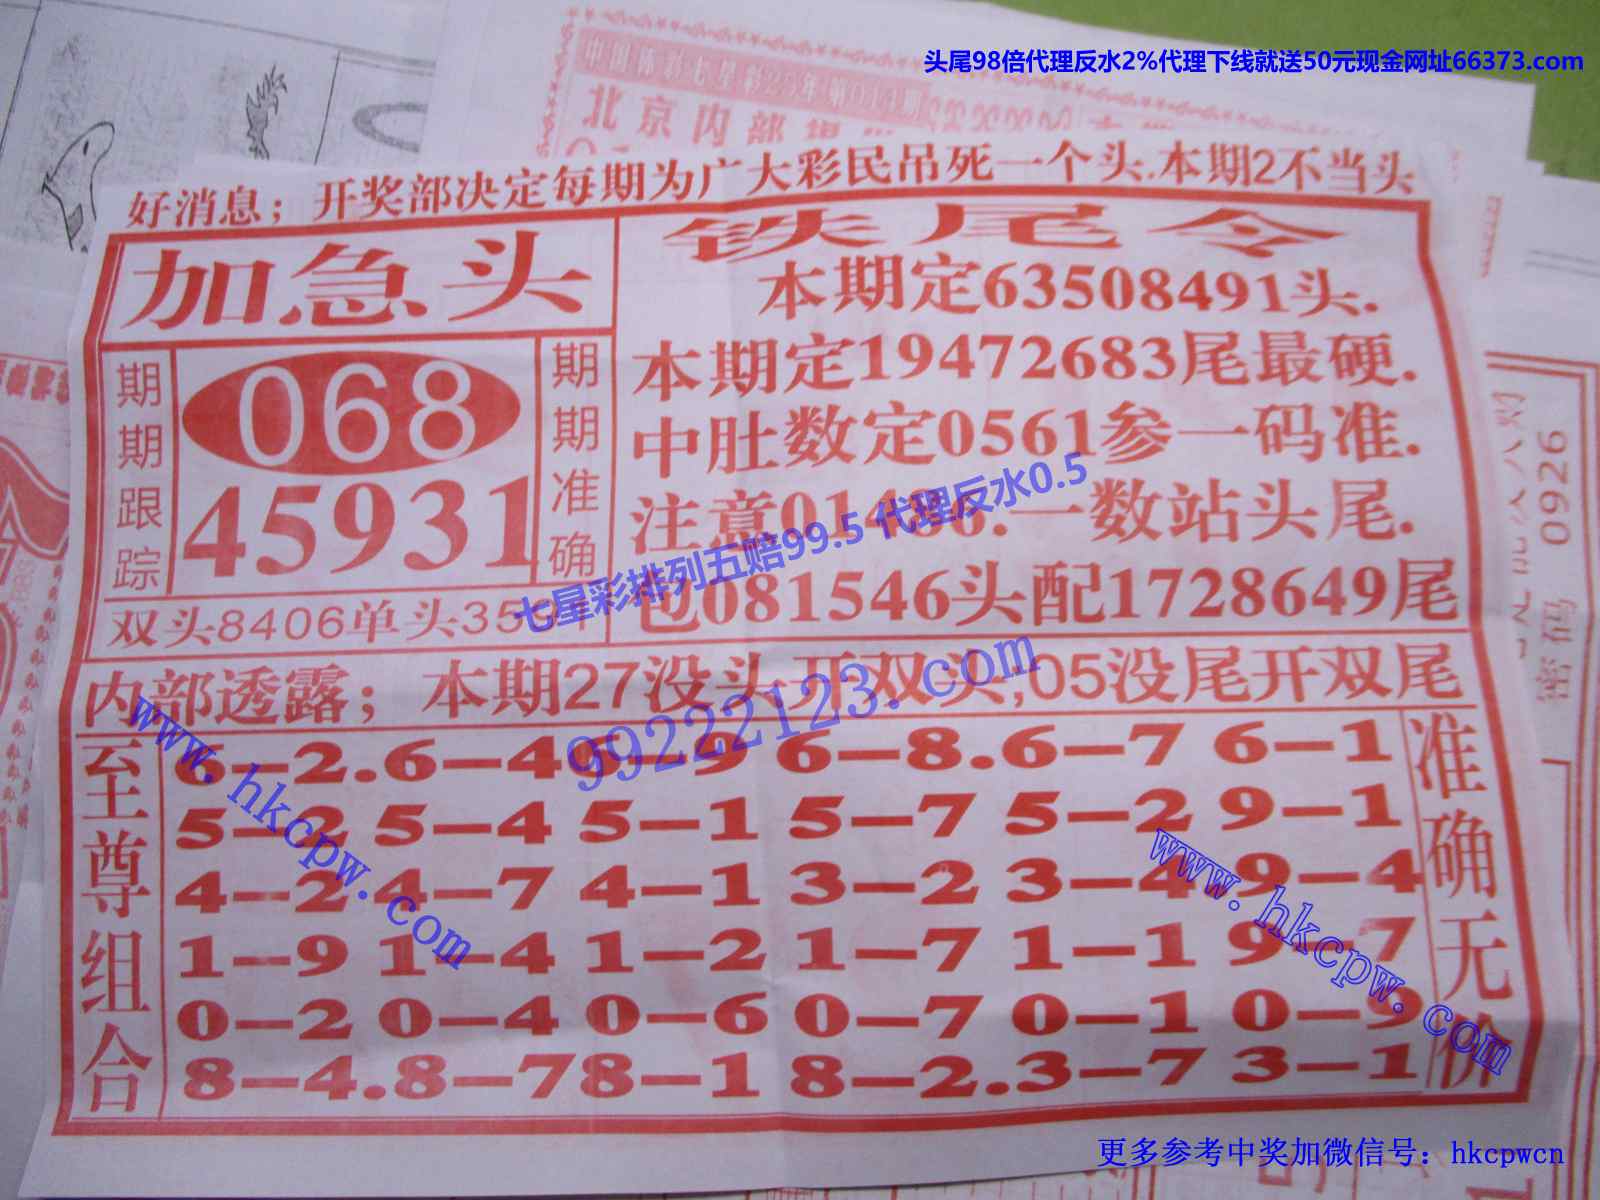 头尾98倍代理反水2%代理下线就送50元现金网址66373.com
北京内部
好消息；开奖部决定每期为广大彩民吊死一个头.本期2不当头
加急头
铁尾令
期期跟踪
068
45931
期期准确
双头8406单头359
本期定63508491头.
本期定19472683尾最硬.
中肚数定0561参一码准.
注意01486.一数站头尾.
包081546头配1728649尾
七星彩排列五赔99.5 代理反水0.5
99222123.com
内部透露；本期27没头开双头;05没尾开双尾
至尊组合
6-2.6-4 5-9 6-8.6-7 6-1
5-2 5-4 5-1 5-7 5-2 9-1
4-2 4-7 4-1 3-2 3-4 9-4
1-9 1-4 1-2 1-7 1-1 9-7
0-2 0-4 0-6 0-7 0-1 0-9
8-4.8-7 8-1 8-2.3-7 3-1
准确无价
www.hkcpw.com
www.hkcpw.com
密码 0926
更多参考中奖加微信号：hkcpwcn